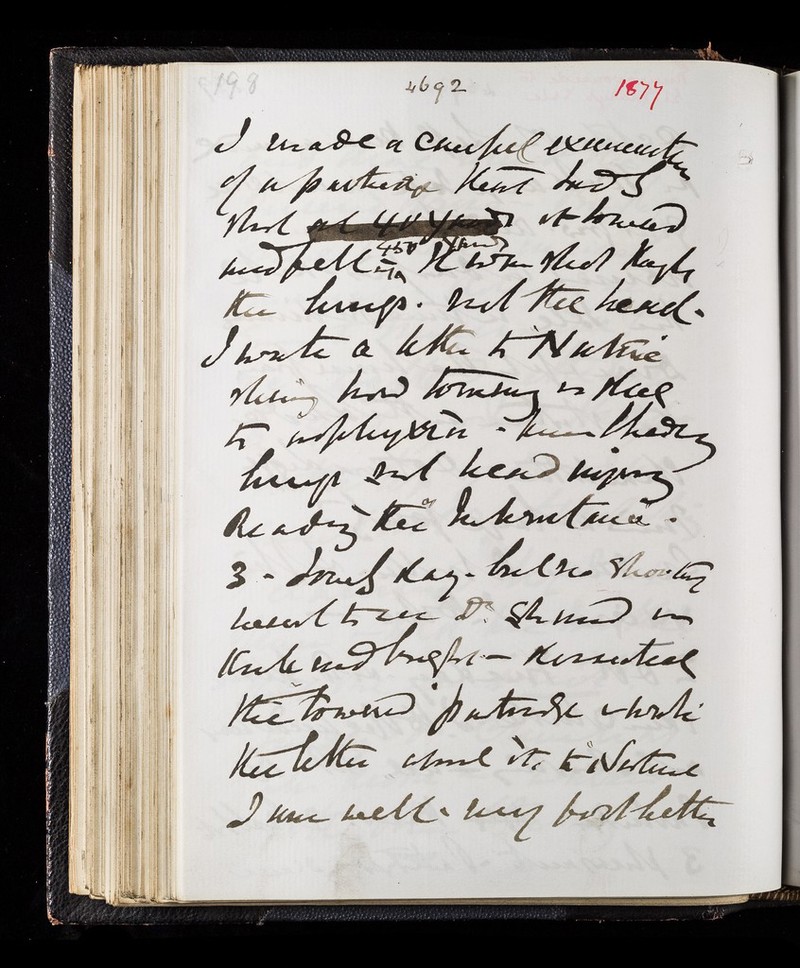 198 4692 1877
I made a careful examination
of a partridge that had I
shot at 40 yards it towered
and fell 450 yards It was shot through
the lungs. not the head.
I wrote a letter to Nature
showing how towering is due
to asphyxia - from bleeding
lungs not head injury
Reading the Inheritance.
3 - lovely day. but no shooting
went to see Dr
and bright - dissected
the towered partridge & wrote
the letter & sent it to Nature
I am well - my foot better